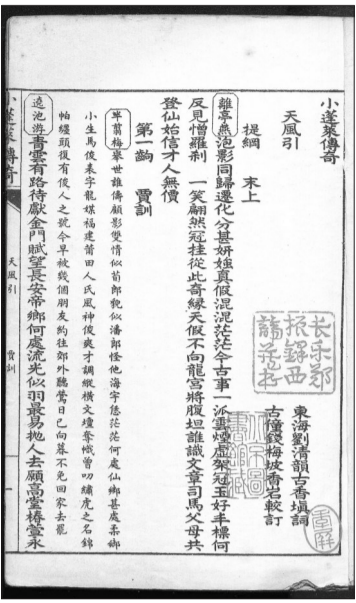 小蓬萊傳奇
天風引
東海劉清韻古香塡詞
古僮錢梅坡香岩較訂
提綱　末上
離亭燕泡影同歸遷化分甚妍媸真假混混茫茫今古事一派雲煙虛架冠玉好丰標何
反見憎羅剎　一笑翩然冠挂從此奇緣天假不向龍宮將腹坦誰識文章司馬父母共
登仙始信才人無價
第一齣　賈訓
半翦梅舉世誰儔顧影雙情似荀郎貌似潘郎怪他海宇恁茫茫何處仙鄉甚處柔鄉
小生馬俊表字龍媒福建莆田人氏風神俊爽才調縱橫文壇奪幟曾叨繡虎之名錦
帕纏頭復有俊人之號今早被幾個朋友約往郊外聽鶯日已向暮不免回家去罷
遶池游靑雲有路待獻金門賦望長安帝鄉何處流光似羽最易拋人去願高堂椿萱永
小蓬萊傳奇
天風引
賈訓
一
长乐郑振铎西谛藏书
北京圖書館藏